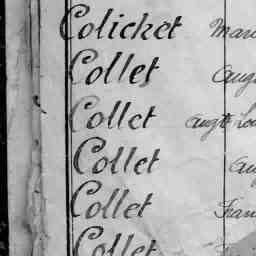 Colicket Mari
Collet Aug
Collet Augte Lo
Collet Au
Collet Fran
Collet